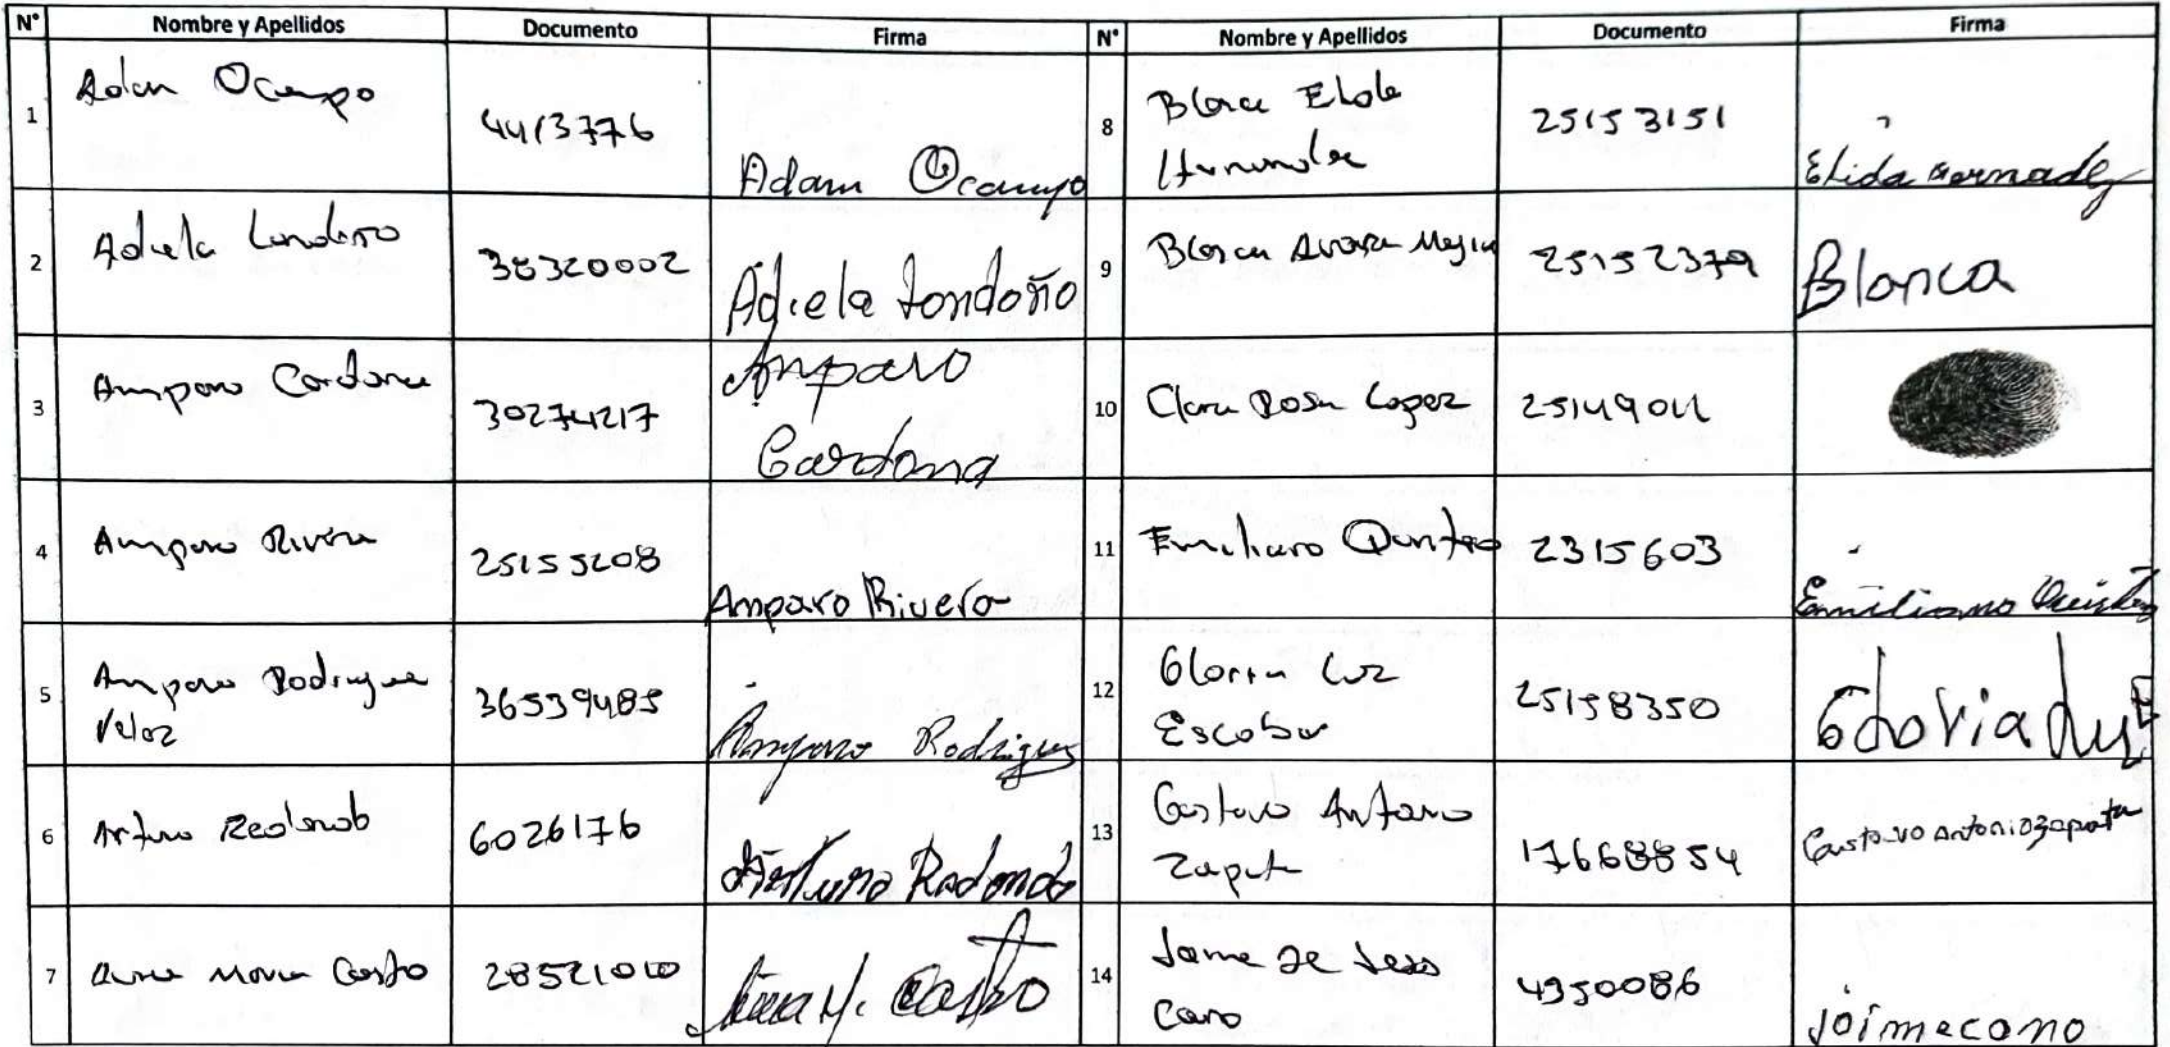 N° Nombre y Apellidos Documento Firma N° Nombre y Apellidos Documento Firma
1 Adan Ocampo 4413776 Adam Ocampo
8 Blanca Elida 25153151 Elida Hernadez
Hernandez
2 Adiela Londono 38320002 Adiela Londoño
9 Blanca Mejia 25152379 Blanca
3 Amparo Cardona 30274217 Amparo
Cardona
10 Clara Rosa Lopez 25149011
4 Amparo Rivera 25155208 Amparo Rivera
11 Emiliano Quintero 2315603 Emiliano
5 Amparo Rodriguez 36539485 Amparo Rodriguez
Veloz
12 Gloria Luz 25158350 Gloria Luz E
Escobar
6 Arturo Redondo 6026176 Arturo Redondo
13 Gustavo Antonio 17668854 Gustavo Antonio zapata
Zapata
7 Ana Maria Castro 28521010 Ana M. Castro
14 Jaime De Jesus 4350086 joimecano
Cano